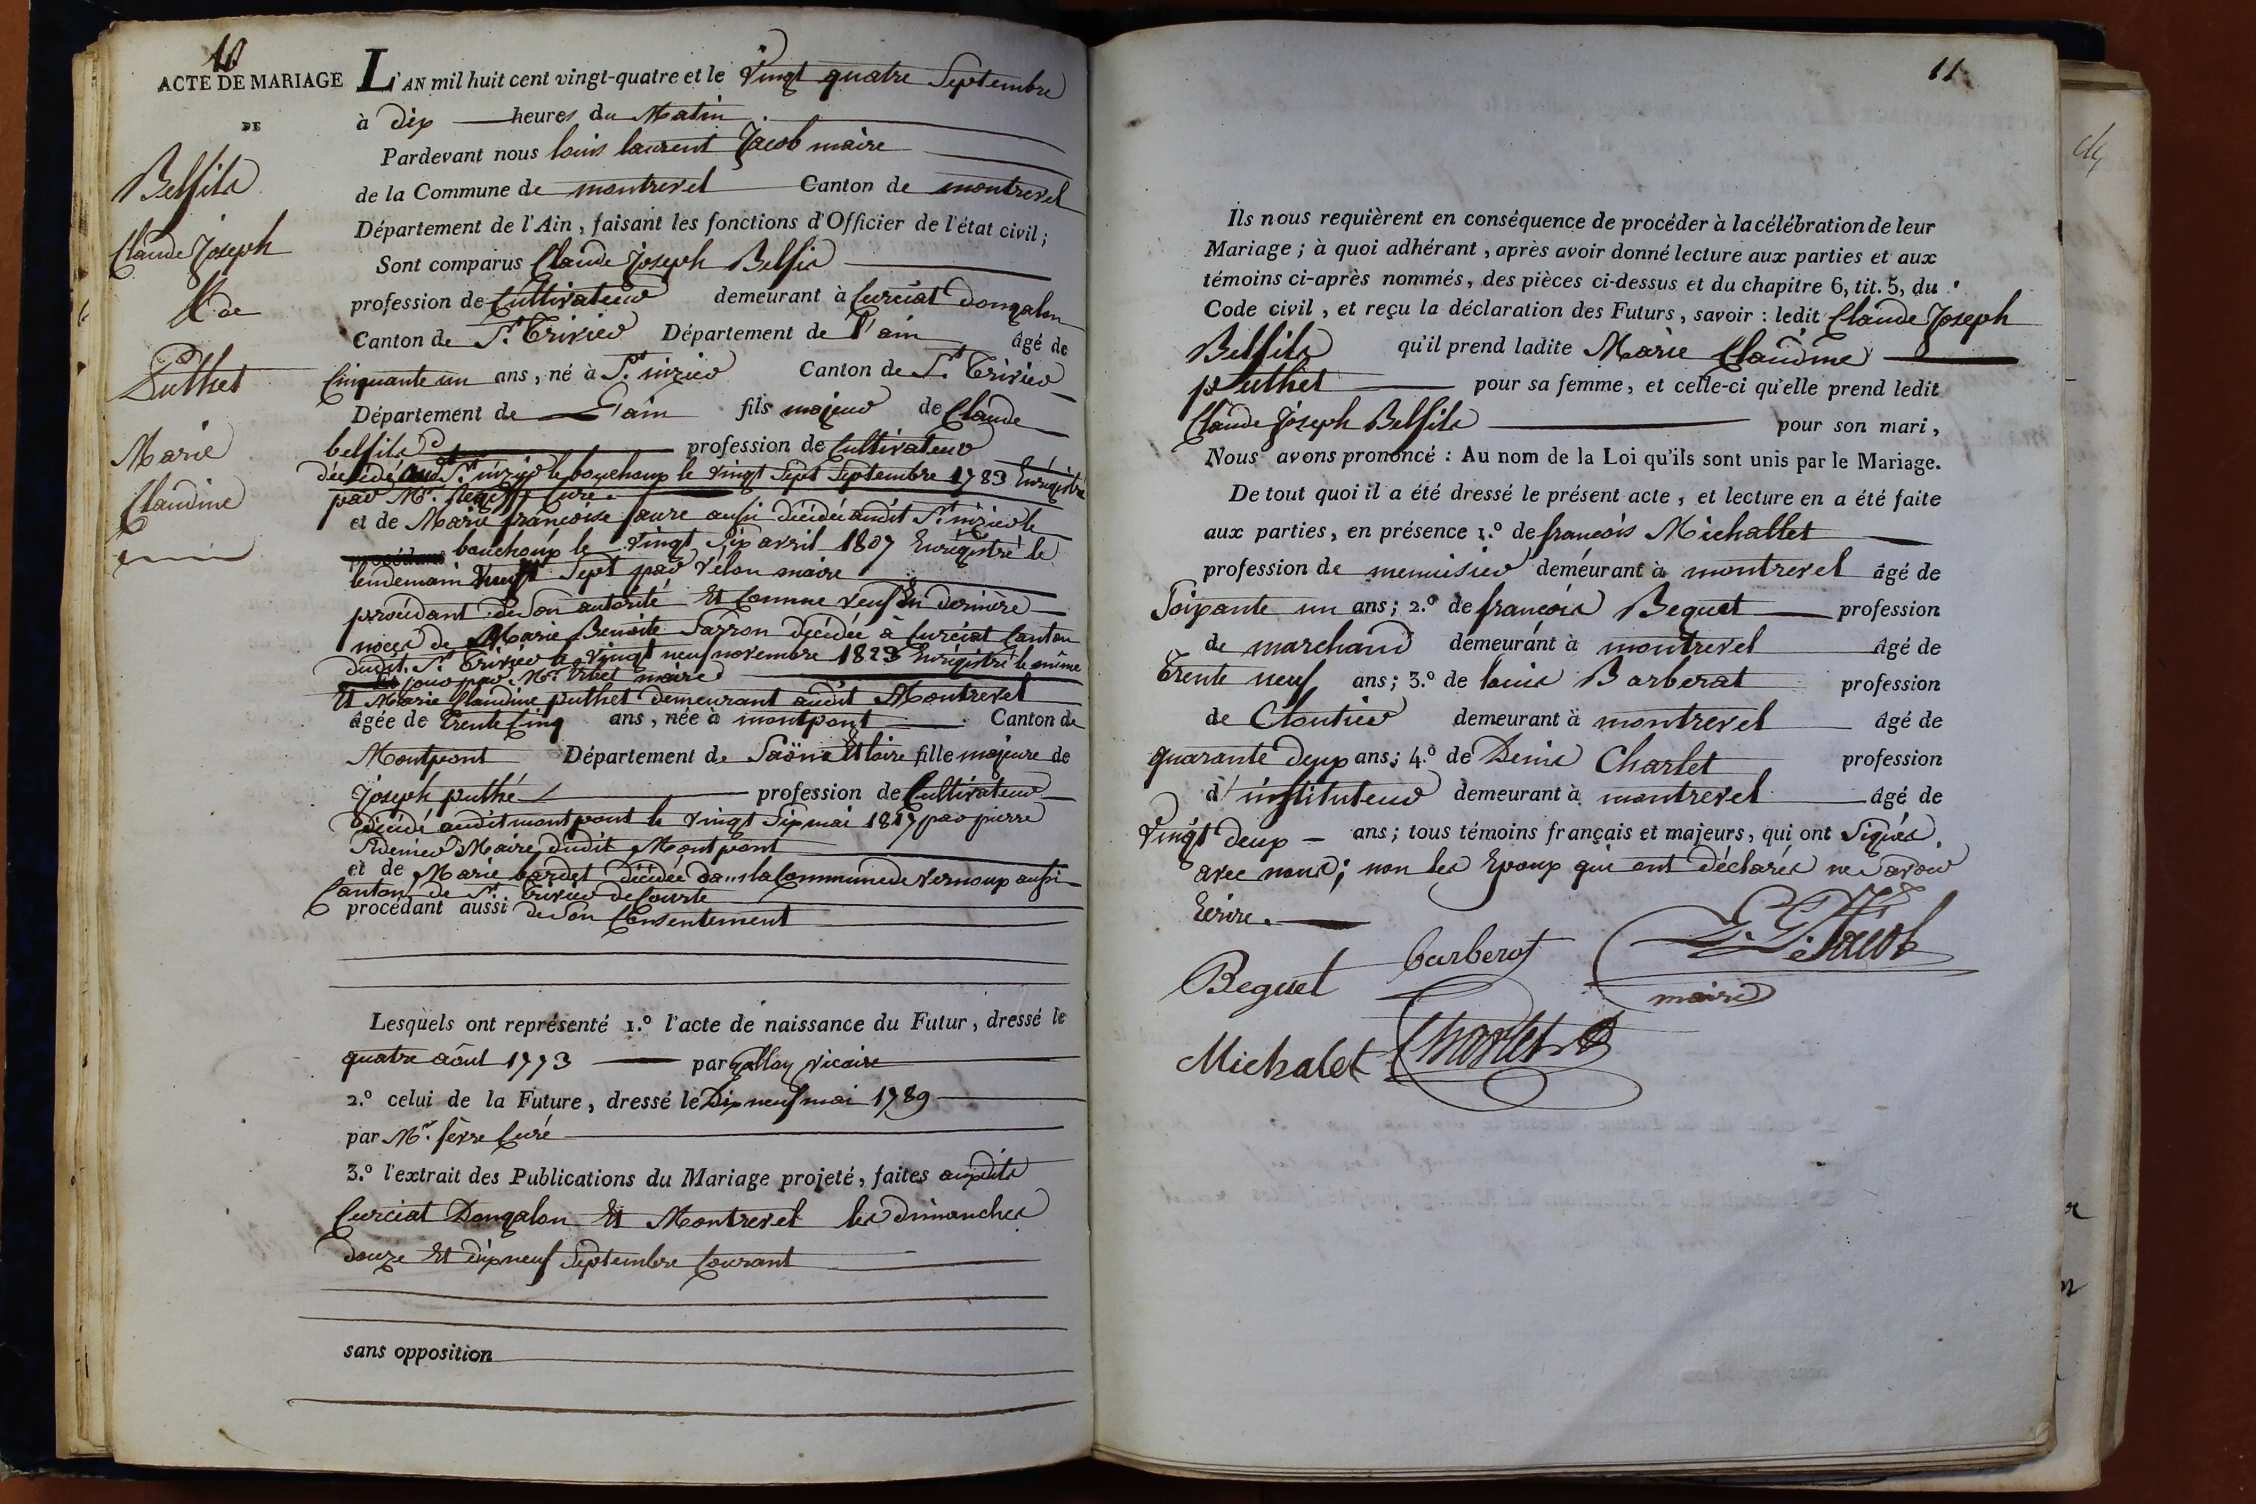 10
ACTE DE MARIAGE
DE
Belfils
Claude Joseph
& de
Puthet
Marie
Claudine
L'AN mil huit cent vingt-quatre et le Vingt quatre Septembre
à dix heures du Matin
Pardevant nous louis laurent Jacob maire
de la Commune de montrevel Canton de montrevel
Département de l'Ain, faisant les fonctions d'Officier de l'état civil ;
Sont comparus Claude Joseph Belfis
profession de Cultivateur demeurant à Curciat Dongalon
Canton de St. Trivier Département de l'ain âgé de
Cinquante un ans, né à St. nizier Canton de St. Trivier
Département de L'ain fils majeur de Claude
belfils profession de Cultivateur
décédé St. nizier le bouchoux le vingt Sept Septembre 1783 Enrégistré
par Mr. Curé.
et de Marie françoise faure aussi décédée audit St. nizier le
bouchoux le vingt Six avril 1807 Enrégistré le
lendemain Sept par Vélon maire
procédant de Son autorité Et Comme veuf En dernière
noces de Marie Benoite Sarron décédée à Curciat Canton
dudit St. Trivier le vingt neuf novembre 1823 Enrégistré le même
jour par Mr. maire
Et Marie Claudine puthet demeurant audit Montrevel
âgée de Trente Cinq ans, née à montpont Canton de
Montpont Département de Saône Et loire fille majeure de
Joseph puthé profession de Cultivateur
décédé audit montpont le vingt Six mai 1817 par pierre
Maire dudit Montpont
et de Marie bardet décédée dans la Commune de Vernoux aussi
Canton de St. Trivier de Courte
procédant aussi de Son Consentement
Lesquels ont représenté 1.° l'acte de naissance du Futur, dressé le
quatre aôut 1773 par vicaire
2.° celui de la Future, dressé le Dix neuf mai 1789
par Mr. fèvre Curé
3.° l'extrait des Publications du Mariage projeté, faites auxdits
Curciat Dongalon Et Montrevel les dimanches
douze Et dix neuf Septembre Courant
sans opposition
11
Ils nous requièrent en conséquence de procéder à la célébration de leur
Mariage ; à quoi adhérant, après avoir donné lecture aux parties et aux
témoins ci-après nommés, des pièces ci-dessus et du chapitre 6, tit. 5, du
Code civil, et reçu la déclaration des Futurs, savoir : ledit Claude Joseph
Belfils qu'il prend ladite Marie Claudine
puthet pour sa femme, et celle-ci qu'elle prend ledit
Claude Joseph Belfils pour son mari,
Nous avons prononcé : Au nom de la Loi qu'ils sont unis par le Mariage.
De tout quoi il a été dressé le présent acte, et lecture en a été faite
aux parties, en présence 1.° de françois Michallet
profession de menuisier demeurant à montrevel âgé de
Soixante un ans ; 2.° de françois Beguet profession
de marchand demeurant à montrevel âgé de
Trente neuf ans ; 3.° de louis Barberat profession
de Cloutier demeurant à montrevel âgé de
quarante deux ans ; 4.° de Denis Charlet profession
d'instituteur demeurant à montrevel âgé de
Vingt deux ans ; tous témoins français et majeurs, qui ont Signés
avec nous ; non les Epoux qui ont déclarés ne Savoir
Ecrire.
Beguet barberot Jacob
maire
Michalet Charlet